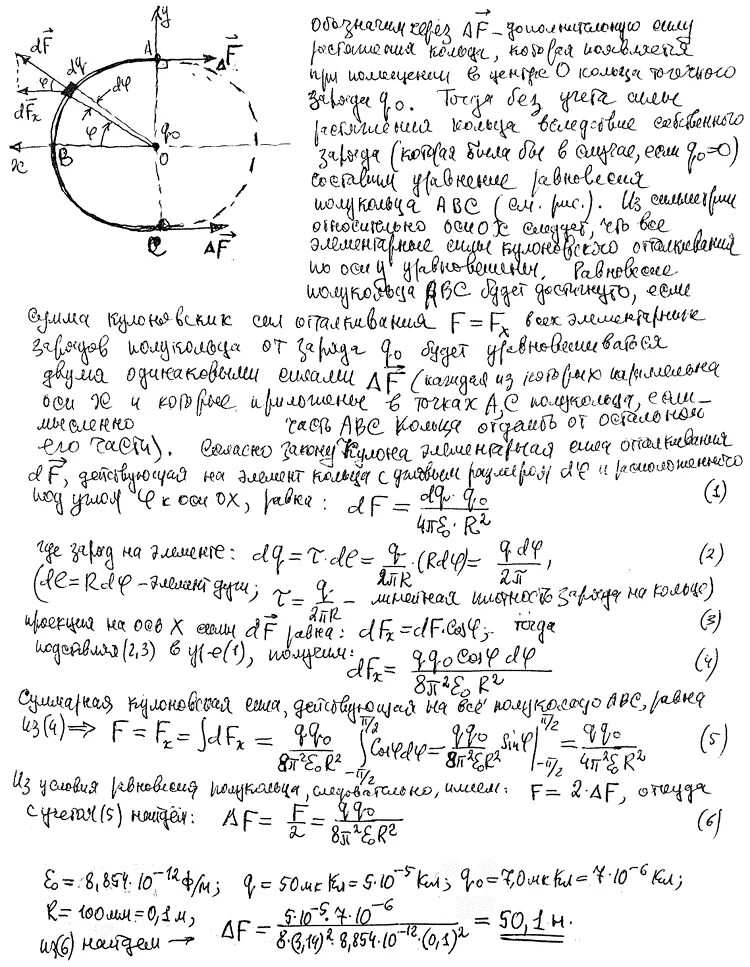 y
dF⃗
dq
A
ΔF⃗
φ
dφ
dF⃗x
φ
q₀
x
B
O
C
ΔF⃗
обозначим через ΔF⃗ – дополнительную силу
растяжения кольца, которая появляется
при помещении в центре O кольца точечного
заряда q₀. Тогда без учета силы
растяжения кольца вследствие собственного
заряда (которая была бы в случае, если q₀=0)
составим уравнение равновесия
полукольца ABC (см. рис.). Из симметрии
относительно оси OX следует, что все
элементарные силы кулоновского отталкивания
по оси y уравновешены. Равновесие
полукольца ABC будет достигнуто, если
сумма кулоновских сил отталкивания F = Fx всех элементарных
зарядов полукольца от заряда q₀ будет уравновешиваться
двумя одинаковыми силами ΔF⃗ (каждая из которых параллельна
оси x и которые приложены в точках A, C полукольца, если
мысленно часть ABC кольца отделить от остальной
его части). Согласно закону Кулона элементарная сила отталкивания
dF⃗, действующая на элемент кольца с угловым размером dφ и расположенного
под углом φ к оси OX, равна: dF = dq·q₀/(4πε₀·R²) (1)
где заряд на элементе: dq = τ·dℓ = q/(2πR)·(Rdφ) = qdφ/(2π), (2)
(dℓ=Rdφ – элемент дуги; τ = q/(2πR) – линейная плотность заряда на кольце)
проекция на ось X силы dF⃗ равна: dFx = dF·Cosφ; тогда (3)
подставляя (2,3) в ур-е (1), получим: dFx = qq₀Cosφdφ/(8π²ε₀R²) (4)
Суммарная кулоновская сила, действующая на всё полукольцо ABC, равна
из (4) ⇒ F = Fx = ∫dFx = qq₀/(8π²ε₀R²) ∫_{-π/2}^{π/2} Cosφdφ = qq₀/(8π²ε₀R²) Sinφ|_{-π/2}^{π/2} = qq₀/(4π²ε₀R²) (5)
Из условия равновесия полукольца, следовательно, имеем: F = 2·ΔF, откуда
с учетом (5) найдём: ΔF = F/2 = qq₀/(8π²ε₀R²) (6)
ε₀ = 8,854·10⁻¹² Ф/м; q = 50 мкКл = 5·10⁻⁵ Кл; q₀ = 7,0 мкКл = 7·10⁻⁶ Кл;
R = 100 мм = 0,1 м,
из (6) найдем → ΔF = 5·10⁻⁵·7·10⁻⁶/(8·(3,14)²·8,854·10⁻¹²·(0,1)²) = 50,1 н.